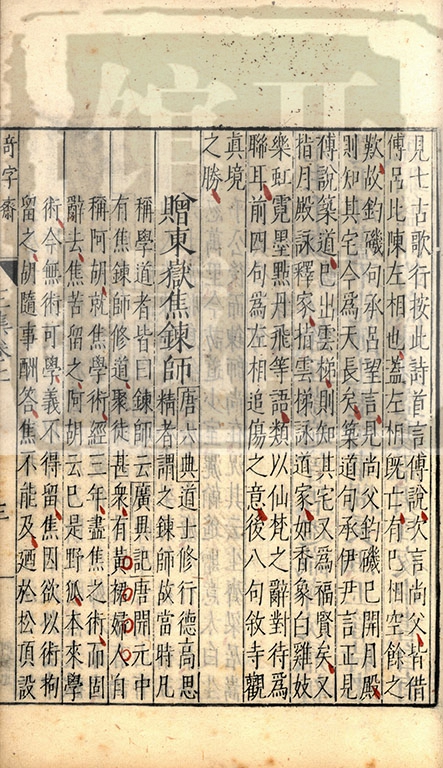 見七古歌行按此詩首言傅說次言尚父皆借
傅呂比陳左相也葢左相旣亡有巳相空餘之
歎故釣磯句承呂望言見尚父釣磯巳開月殿
則知其宅今爲天長矣築道句承伊尹言正見
傅說築道巳出雲梯則知其宅又爲福賢矣又
指月殿詠釋家指雲梯詠道家如香象白雞妓
樂虹霓墨點丹飛等語類以仙梵之辭對待爲
聯耳前四句爲左相追傷之意後八句敘寺觀
眞境
之勝
贈東嶽焦鍊師
唐六典道士修行德高思
精者謂之鍊師故當時凡
稱學道者皆曰鍊師云廣異記唐開元中
有焦鍊師修道聚徒甚衆有黃裙婦人自
稱阿胡就焦學術經三年盡焦之術而固
辭去焦苦留之阿胡云巳是野狐本來學
術今無術可學義不得留焦因欲以術拘
留之胡隨事酬答焦不能及廼於松頂設
奇字齋